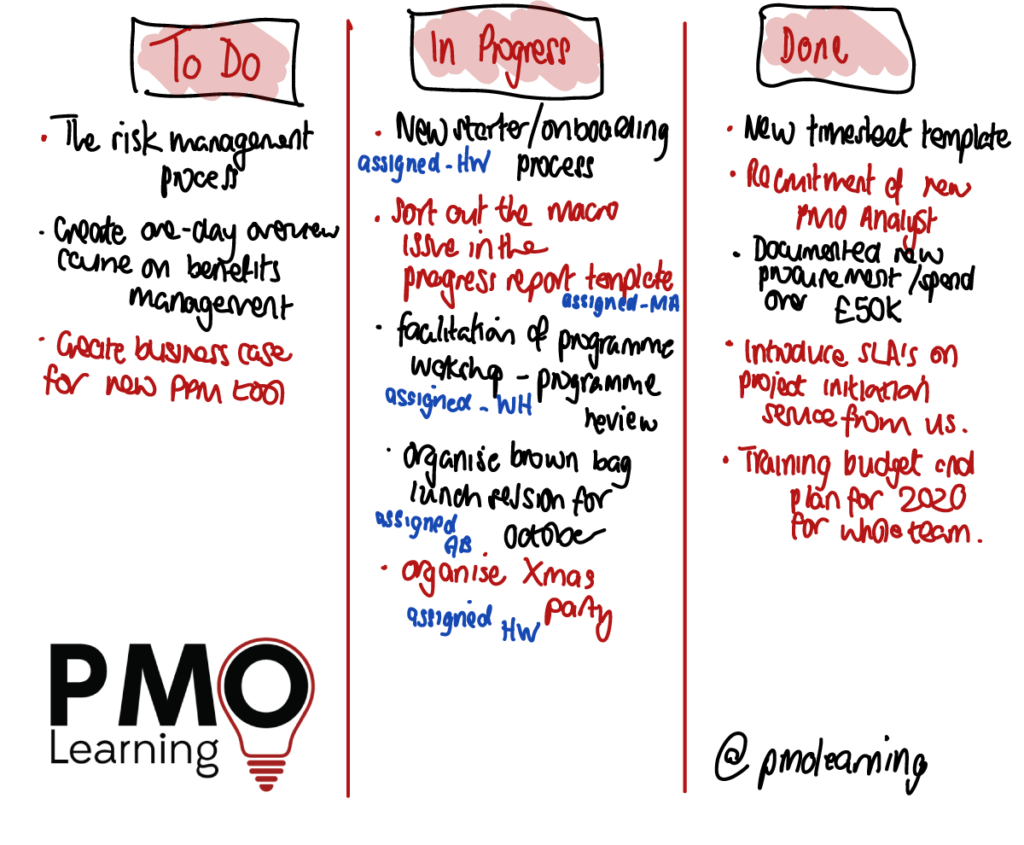 To Do
• The risk management
process
• Create one-day overview
course on benefits
management
• Create business case
for new PPM tool
In Progress
• New starter/onboarding
assigned-HW process
• Sort out the macro
issue in the
progress report template
assigned-MA
• facilitation of programme
workshop - programme
assigned - WH review
• organise brown bag
lunch session for
assigned October
AB
• organise Xmas
party
assigned HW
Done
• New timesheet template
• Recruitment of new
PMO Analyst
• Documented new
procurement/spend
over £50K
• Introduce SLA's on
project initiation
service from us.
• Training budget and
plan for 2020
for whole team.
PMO
Learning
@pmolearning